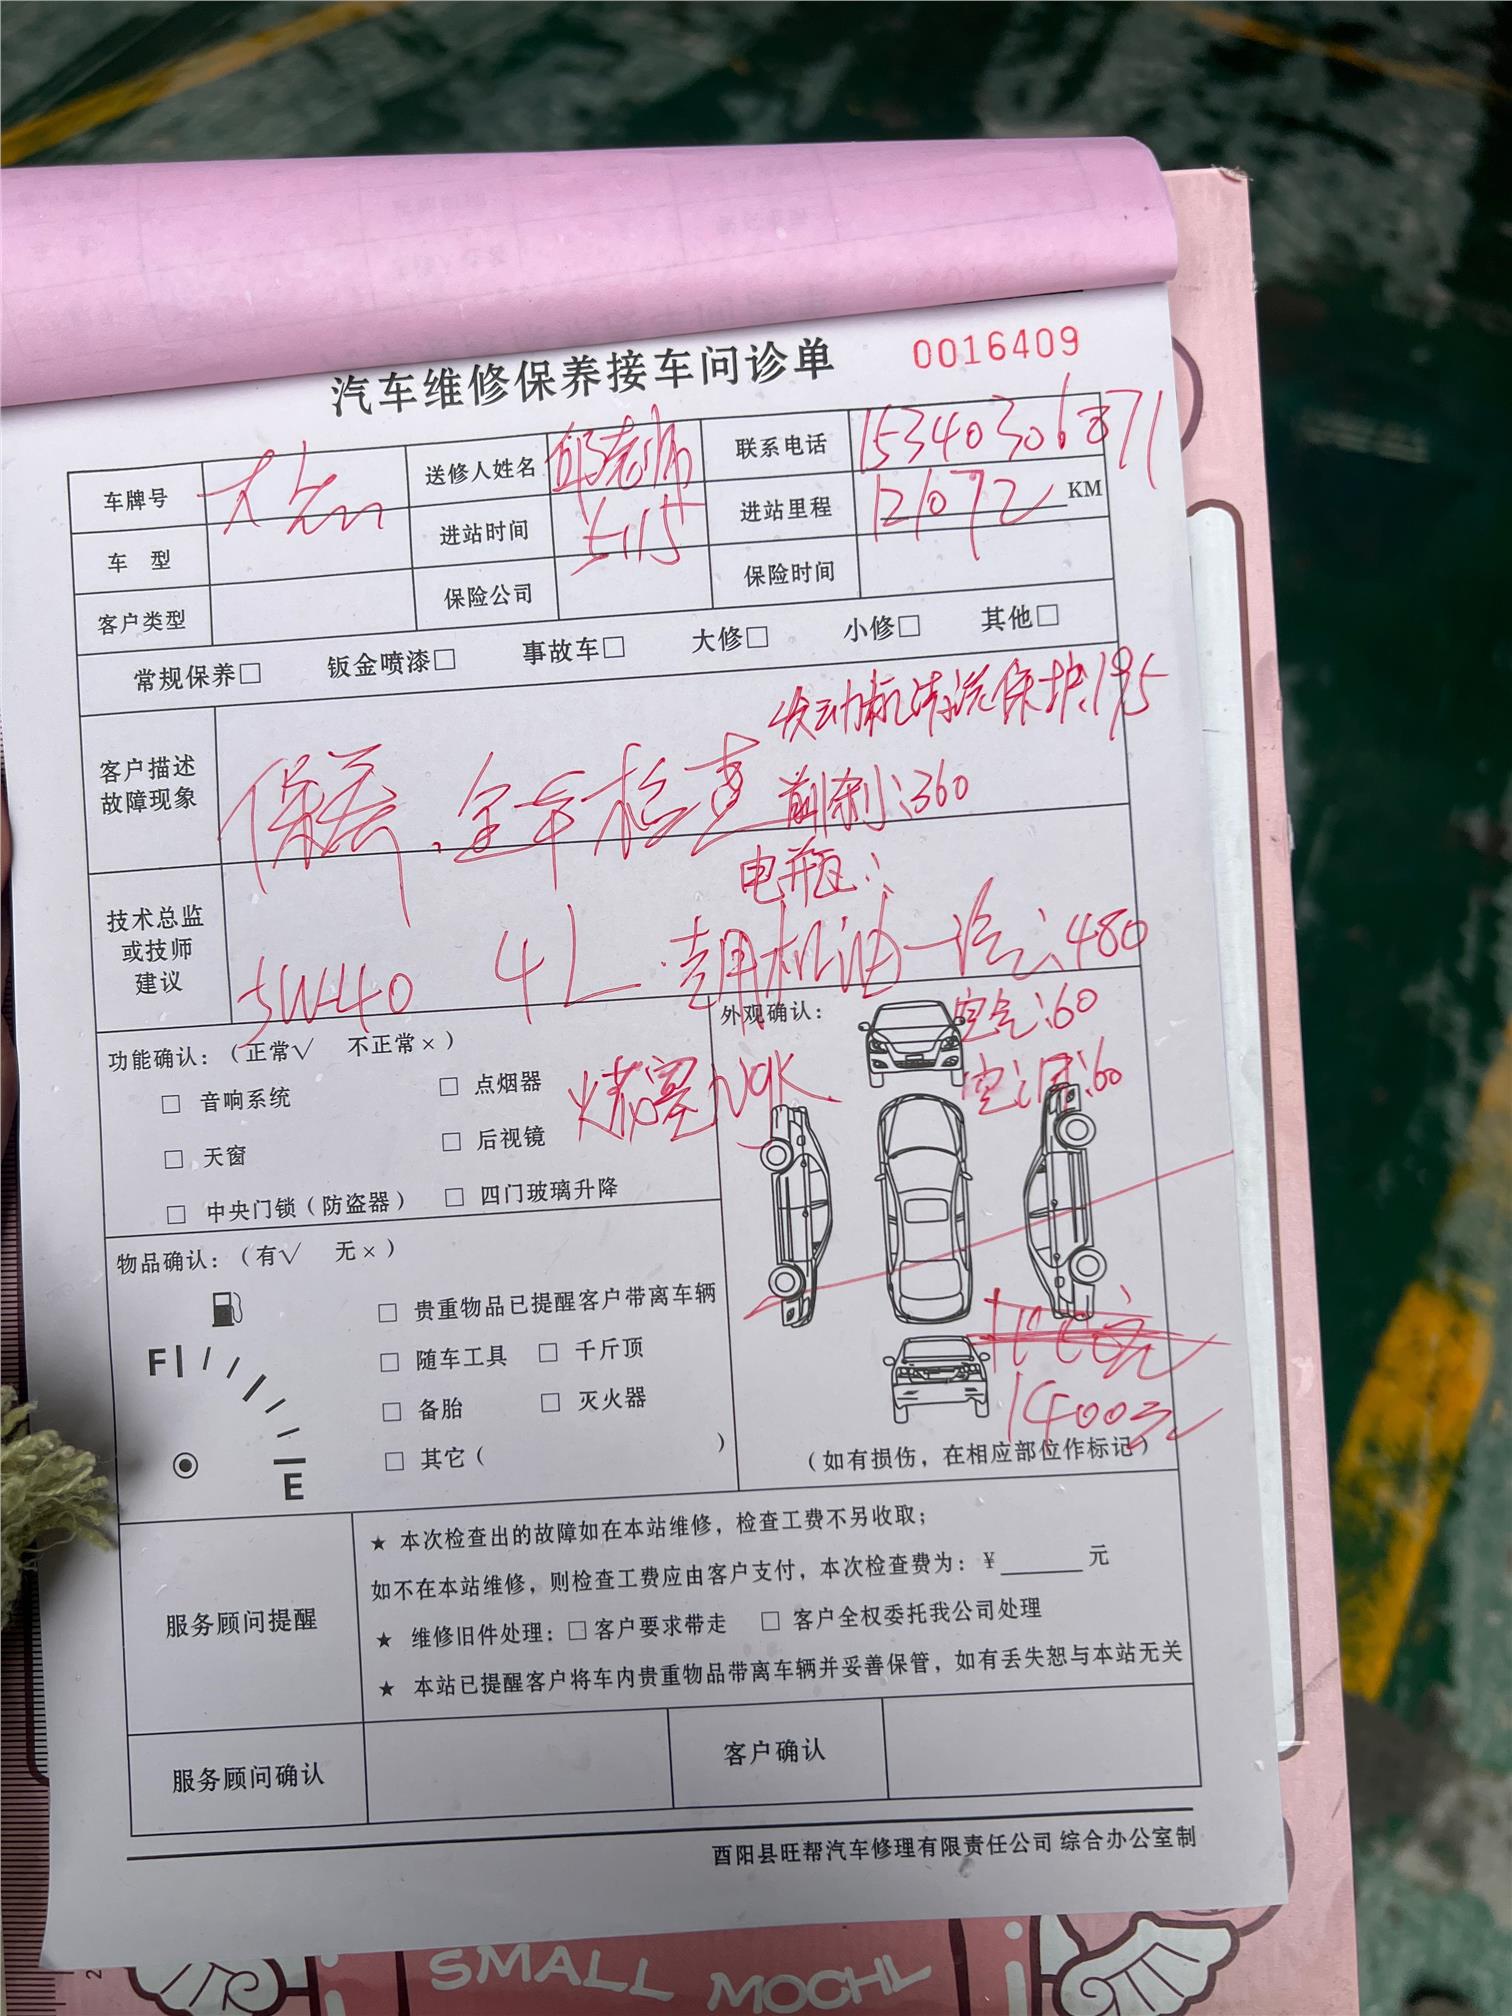 汽车维修保养接车问诊单 0016409
车牌号 送修人姓名 邱老师 联系电话
车 型 进站时间 5.15 进站里程 121092 KM
客户类型 保险公司 保险时间
常规保养□ 钣金喷漆□ 事故车□ 大修□ 小修□ 其他□
发动机清洗保护:195
客户描述
故障现象
保养、全车检查 前刹:360
电瓶:
技术总监
或技师
建议
5W40 4L 机油 480
功能确认:(正常√ 不正常×)
外观确认:
空气:60
□ 音响系统 □ 点烟器
火花塞 NGK
空调:60
□ 天窗 □ 后视镜
□ 中央门锁(防盗器) □ 四门玻璃升降
物品确认:(有√ 无×)
□ 贵重物品已提醒客户带离车辆
F
□ 随车工具 □ 千斤顶
□ 备胎 □ 灭火器
1400元
□ 其它( )
E
(如有损伤,在相应部位作标记)
服务顾问提醒
★ 本次检查出的故障如在本站维修,检查工费不另收取;
如不在本站维修,则检查工费应由客户支付,本次检查费为:¥______元
★ 维修旧件处理:□客户要求带走 □ 客户全权委托我公司处理
★ 本站已提醒客户将车内贵重物品带离车辆并妥善保管,如有丢失恕与本站无关
服务顾问确认 客户确认
酉阳县旺帮汽车修理有限责任公司 综合办公室制
SMALL MOCHI